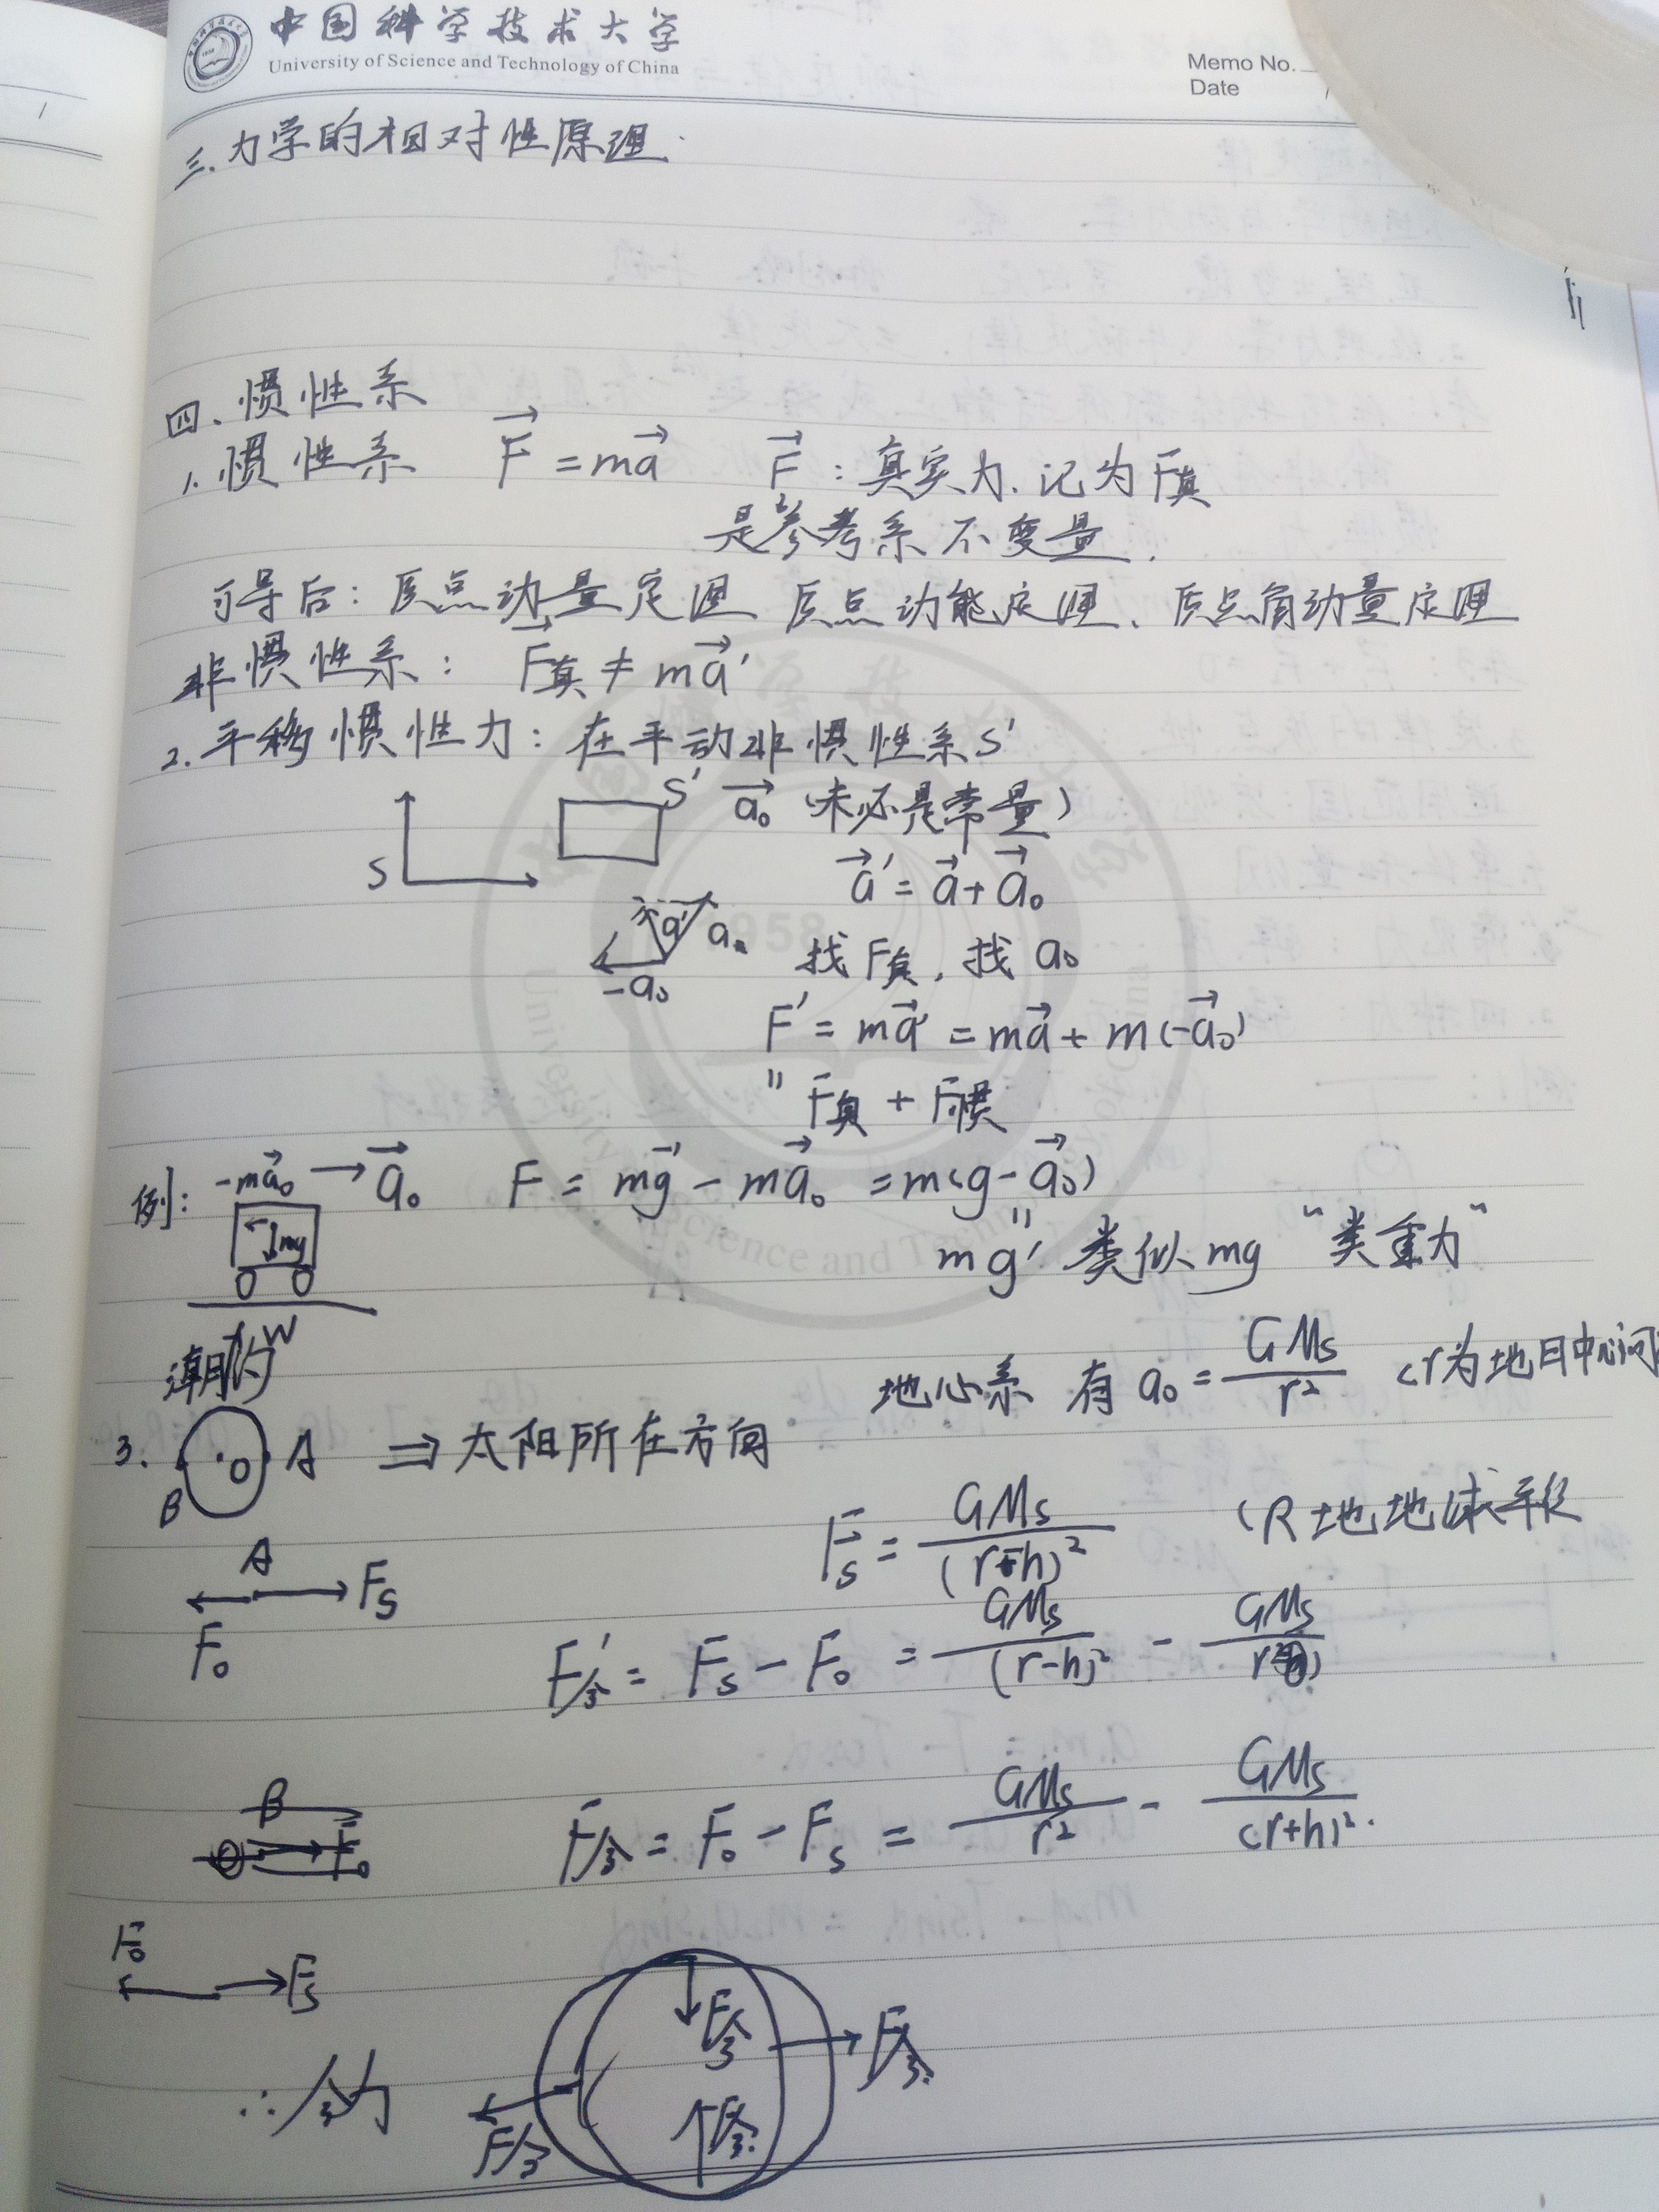 中国科学技术大学
University of Science and Technology of China
Memo No.
Date
三.力学的相对性原理.
四、惯性系
1.惯性系 F⃗ = ma⃗ F⃗:真实力.记为F真
是参考系不变量.
可导后:质点动量定理 质点动能定理、质点角动量定理
非惯性系: F⃗真 ≠ ma⃗′
2.平移惯性力:在平动非惯性系S′
S S′ a⃗₀ (未必是常量)
a⃗′ = a⃗ + a⃗₀
a′ a
-a₀ 找F真,找a₀
F′ = ma⃗′ = ma⃗ + m(-a⃗₀)
" F真 + F惯
例: -ma⃗₀ → a⃗₀ F = mg⃗ - ma⃗₀ = m(g - a⃗₀)
mg
" mg′ 类似mg “类重力”
潮汐
地心系 有 a₀ = GMs/r² (r为地日中心间
3. O A ⇒ 太阳所在方向
B
Fs = GMs/(r-h)² (R地地球半径
A
F₀ Fs
F′合 = Fs - F₀ = GMs/(r-h)² - GMs/r²
B
F₀
F合 = F₀ - Fs = GMs/r² - GMs/(r+h)².
F₀ Fs
∴合力 F合 F合 F合 F合